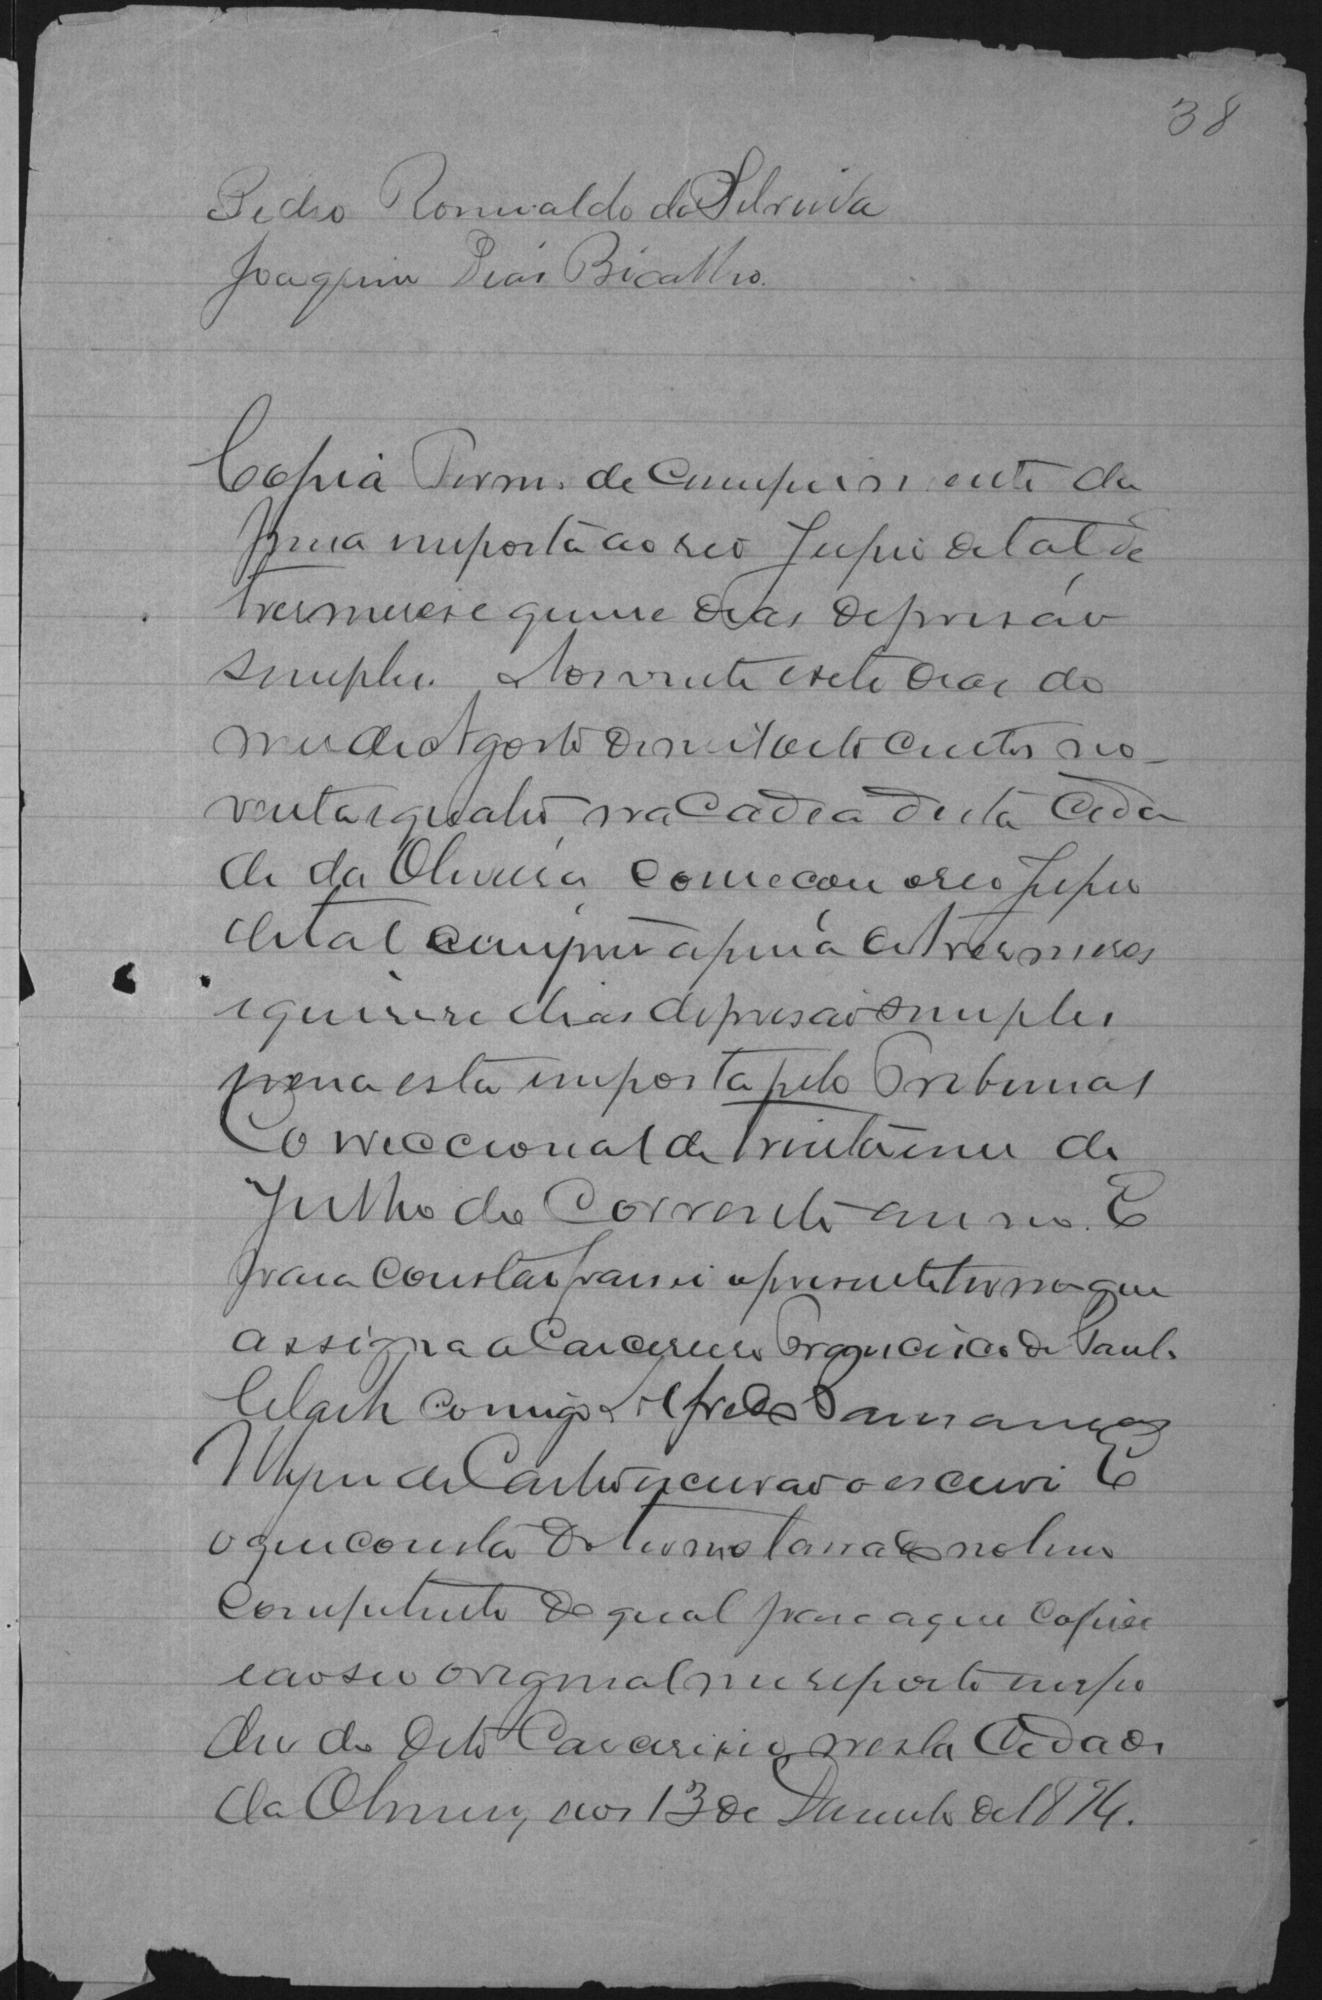 38
Pedro Romualdo da Silveira
Joaquim Dias Bicalho.
Copia Termo de Cumprimento da
pena imposta ao reo Jupio de tal de
tres meses e quinse dias de prisão
simples. Aos vinte e sete dias do
mes de Agosto de mil oito centos no-
venta e quatro na Cadea desta Cida
de da Oliveira começou o reo Jupio
de tal cumprir a pena de tres meses
e quinse dias de prisão simples
pena esta imposta pelo Tribunal
Correccional de trinta e um de
Julho do Corrente anno. E
para constar passei o presente termo que
assigna o Carcereiro Francisco de Paula
comigo Alfredo
de Castro escrivão o escrevi E
o que consta do termo lavrado no livro
competente do qual para aqui copiei
e ao seo original me reporto em po
der do dito Carcereiro nesta Cidade
da Oliveira, aos 13 de de 1894.